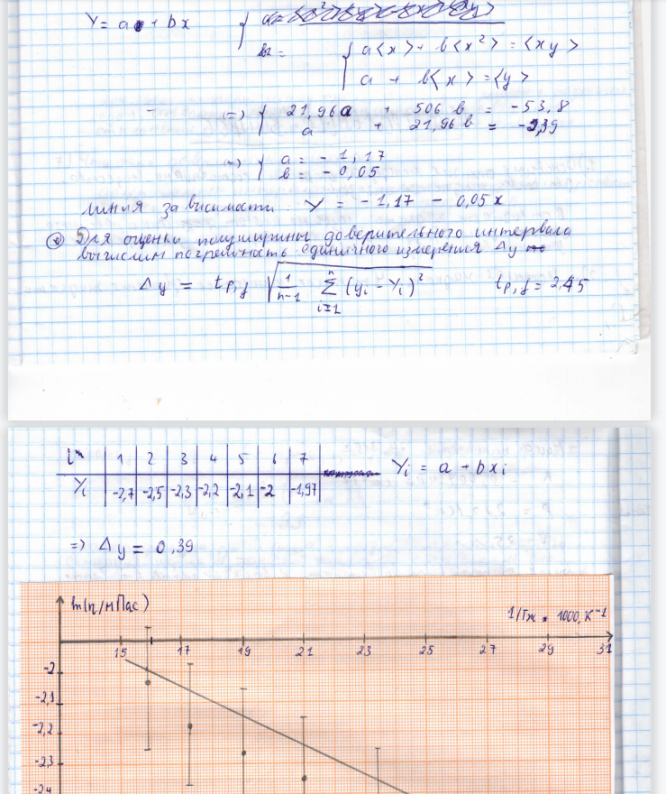 Y = a + bx
b =
{ a<x> + b<x²> = <xy>
a + b<x> = <y>
=> { 21,96a + 506 b = -53,8
a + 21,96 b = -2,39
=> { a = -1,17
b = -0,05
линия зависимости Y = -1,17 - 0,05x
Для оценки полуширины доверительного интервала
вычислим погрешность единичного измерения Δy
Δy = tp,f √(1/(n-1) Σ(i=1..n) (yi - Yi)²) tp,f = 2,45
i 1 2 3 4 5 6 7
Yi = a + bxi
Yi -2,7 -2,5 -2,3 -2,2 -2,1 -2 -1,97
=> Δy = 0,39
ln(η/мПас)
1/Tж * 1000, K⁻¹
15 17 19 21 23 25 27 29 31
-2
-2,1
-2,2
-2,3
-2,4